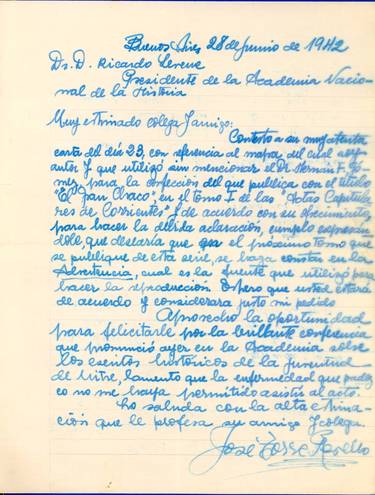 Buenos Aires 28 de junio de 1942
Dr. D. Ricardo Levene
Presidente de la Academia Nacio-
nal de la Historia
Muy estimado colega y amigo:
Contesto a su muy atenta
carta del día 23, con referencia al mapa del cual soy
autor y que utilizó sin mencionar el Dr. Hernán F. Gó-
mez para la confección del que publica con el título
"El Gran Chaco", en el tomo I de las "Actas Capitula-
res de Corrientes" y de acuerdo con su ofrecimiento
para hacer la debida aclaración, cumplo expresán-
dole, que desearía que en el próximo tomo que
se publique de esta serie, se haga constar en la
Advertencia, cual es la fuente que utilizó para
hacer la reproducción. Espero que usted estará
de acuerdo y considerará justo mi pedido
Aprovecho la oportunidad
para felicitarle por la brillante conferencia
que pronunció ayer en la Academia sobre
los escritos históricos de la juventud
de Mitre, lamento que la enfermedad que padez-
co no me haya permitido asistir al acto.
Lo saluda con la alta estima-
ción que le profesa su amigo y colega.
José Torre Revello